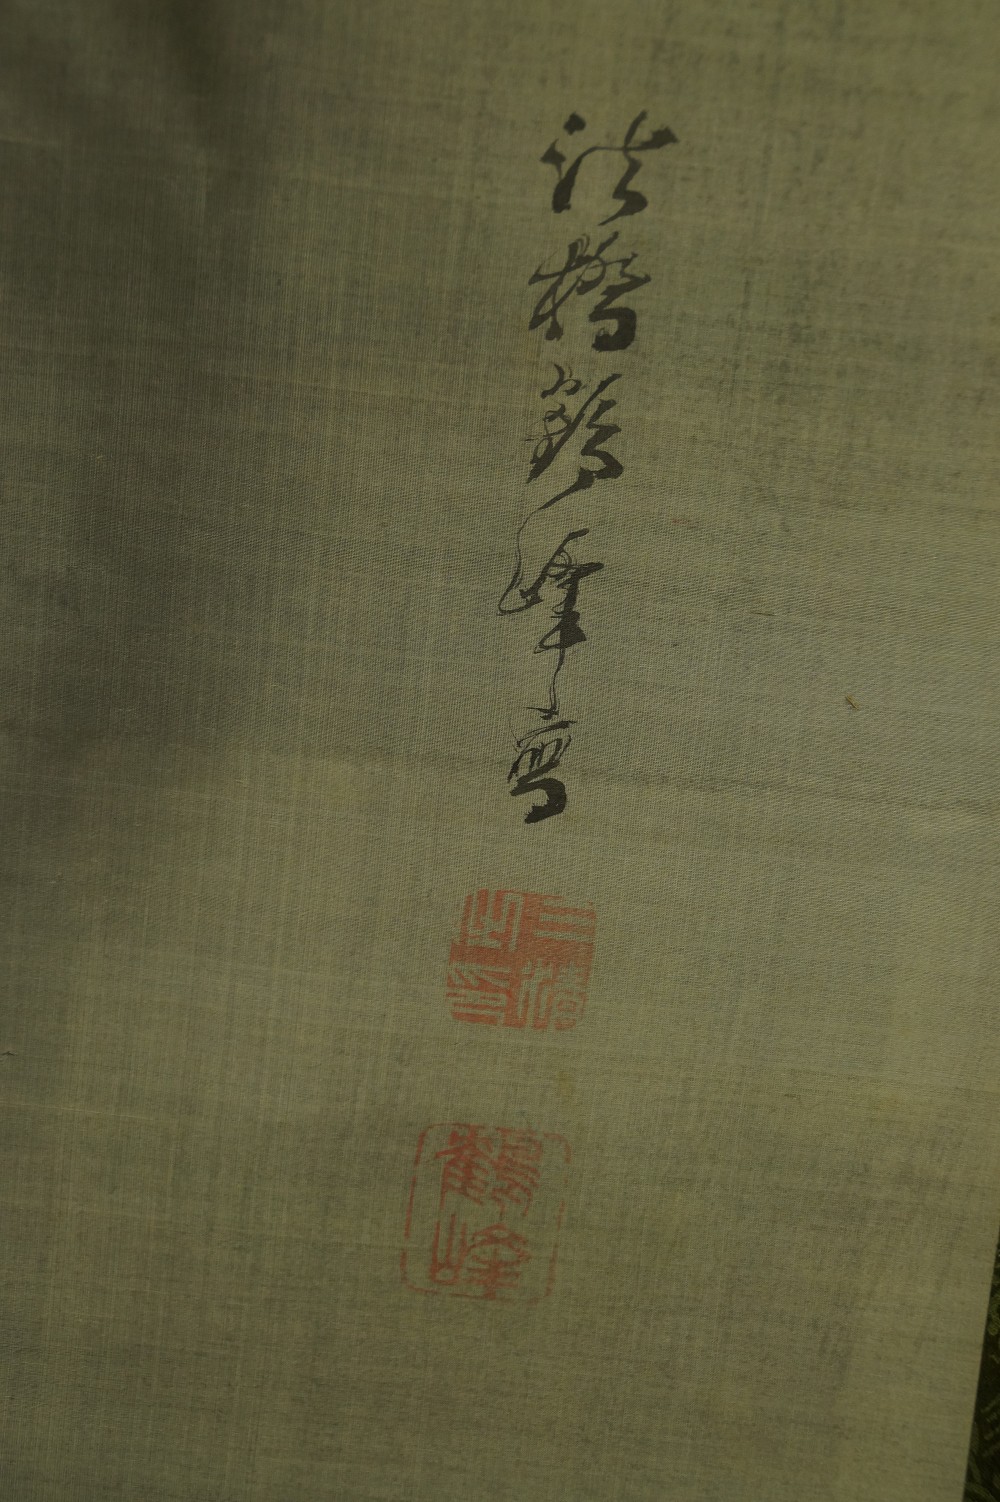 法橋鶴峰寫
鶴峰